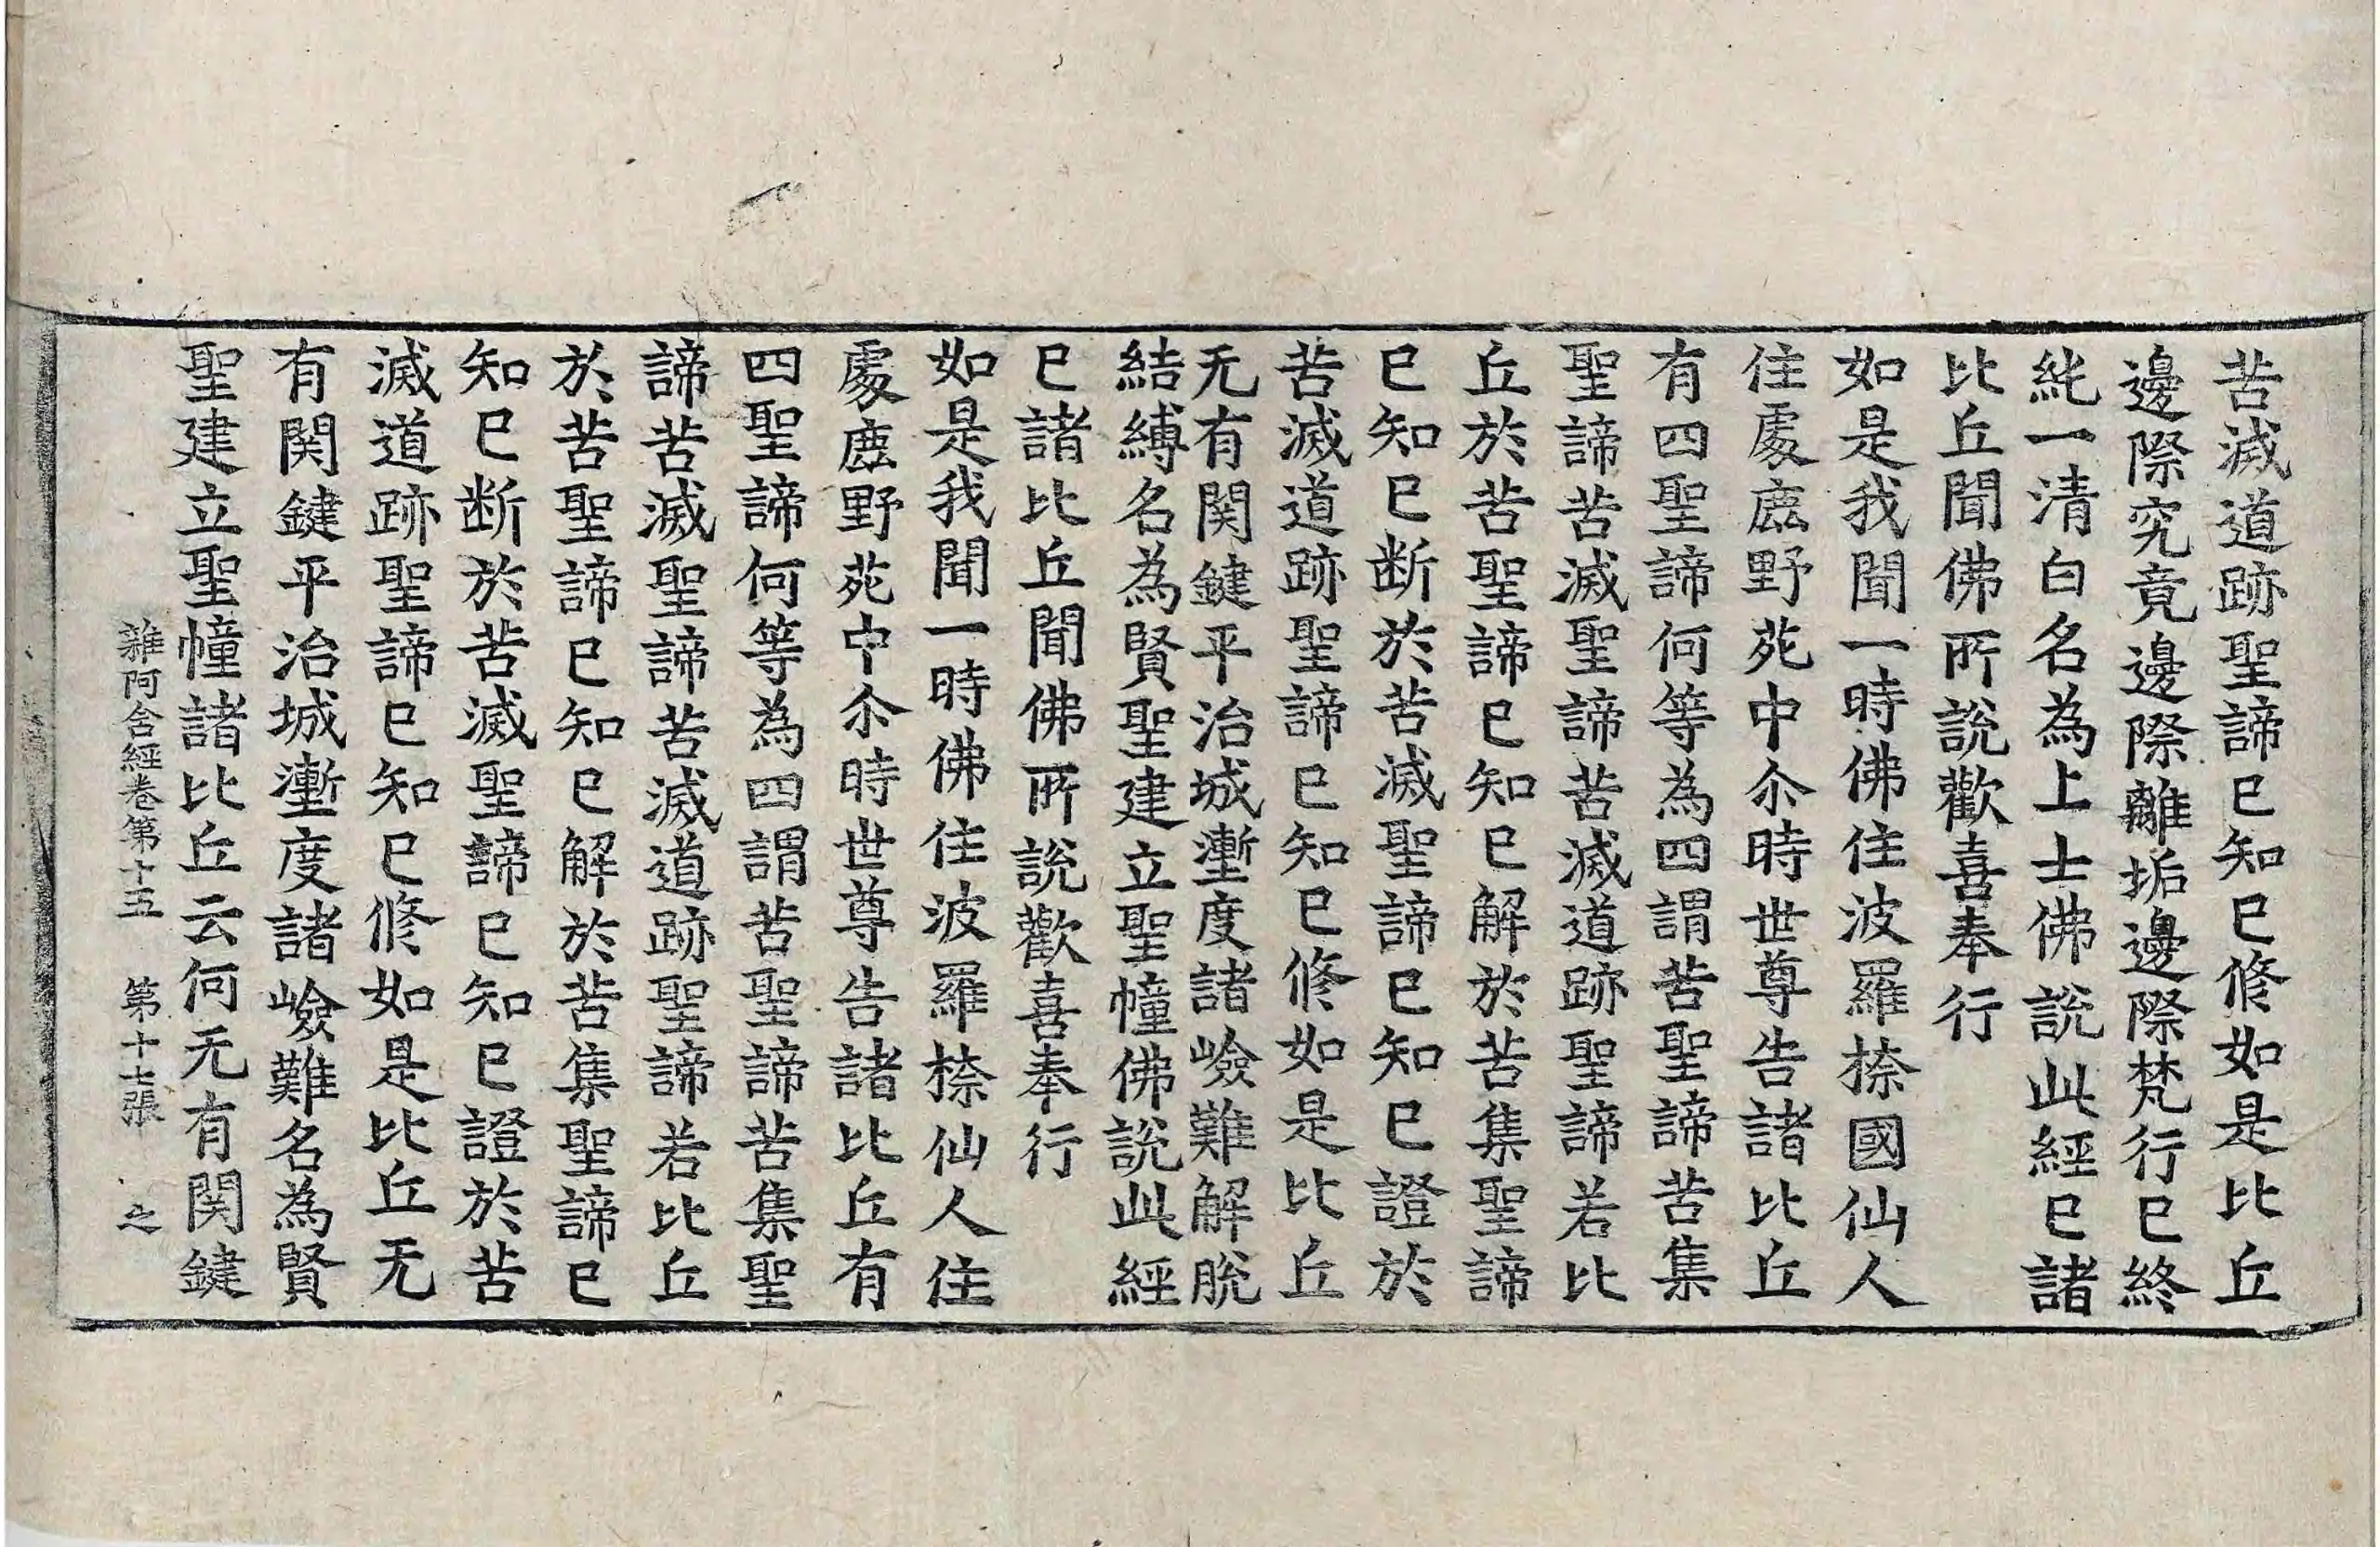 苦滅道跡聖諦已知已修如是比丘
邊際究竟邊際離垢邊際梵行已終
純一清白名為上士佛說此經已諸
比丘聞佛所說歡喜奉行
如是我聞一時佛住波羅㮈國仙人
住處鹿野苑中尒時世尊告諸比丘
有四聖諦何等為四謂苦聖諦苦集
聖諦苦滅聖諦苦滅道跡聖諦若比
丘於苦聖諦已知已解於苦集聖諦
已知已断於苦滅聖諦已知已證於
苦滅道跡聖諦已知已修如是比丘
无有関鍵平治城壍度諸嶮難解脫
結縛名為賢聖建立聖幢佛說此經
已諸比丘聞佛所說歡喜奉行
如是我聞一時佛住波羅㮈仙人住
處鹿野苑中尒時世尊告諸比丘有
四聖諦何等為四謂苦聖諦苦集聖
諦苦滅聖諦苦滅道跡聖諦若比丘
於苦聖諦已知已解於苦集聖諦已
知已断於苦滅聖諦已知已證於苦
滅道跡聖諦已知已修如是比丘无
有関鍵平治城壍度諸嶮難名為賢
聖建立聖幢諸比丘云何无有関鍵
雜阿含經卷第十五 第十七張 之